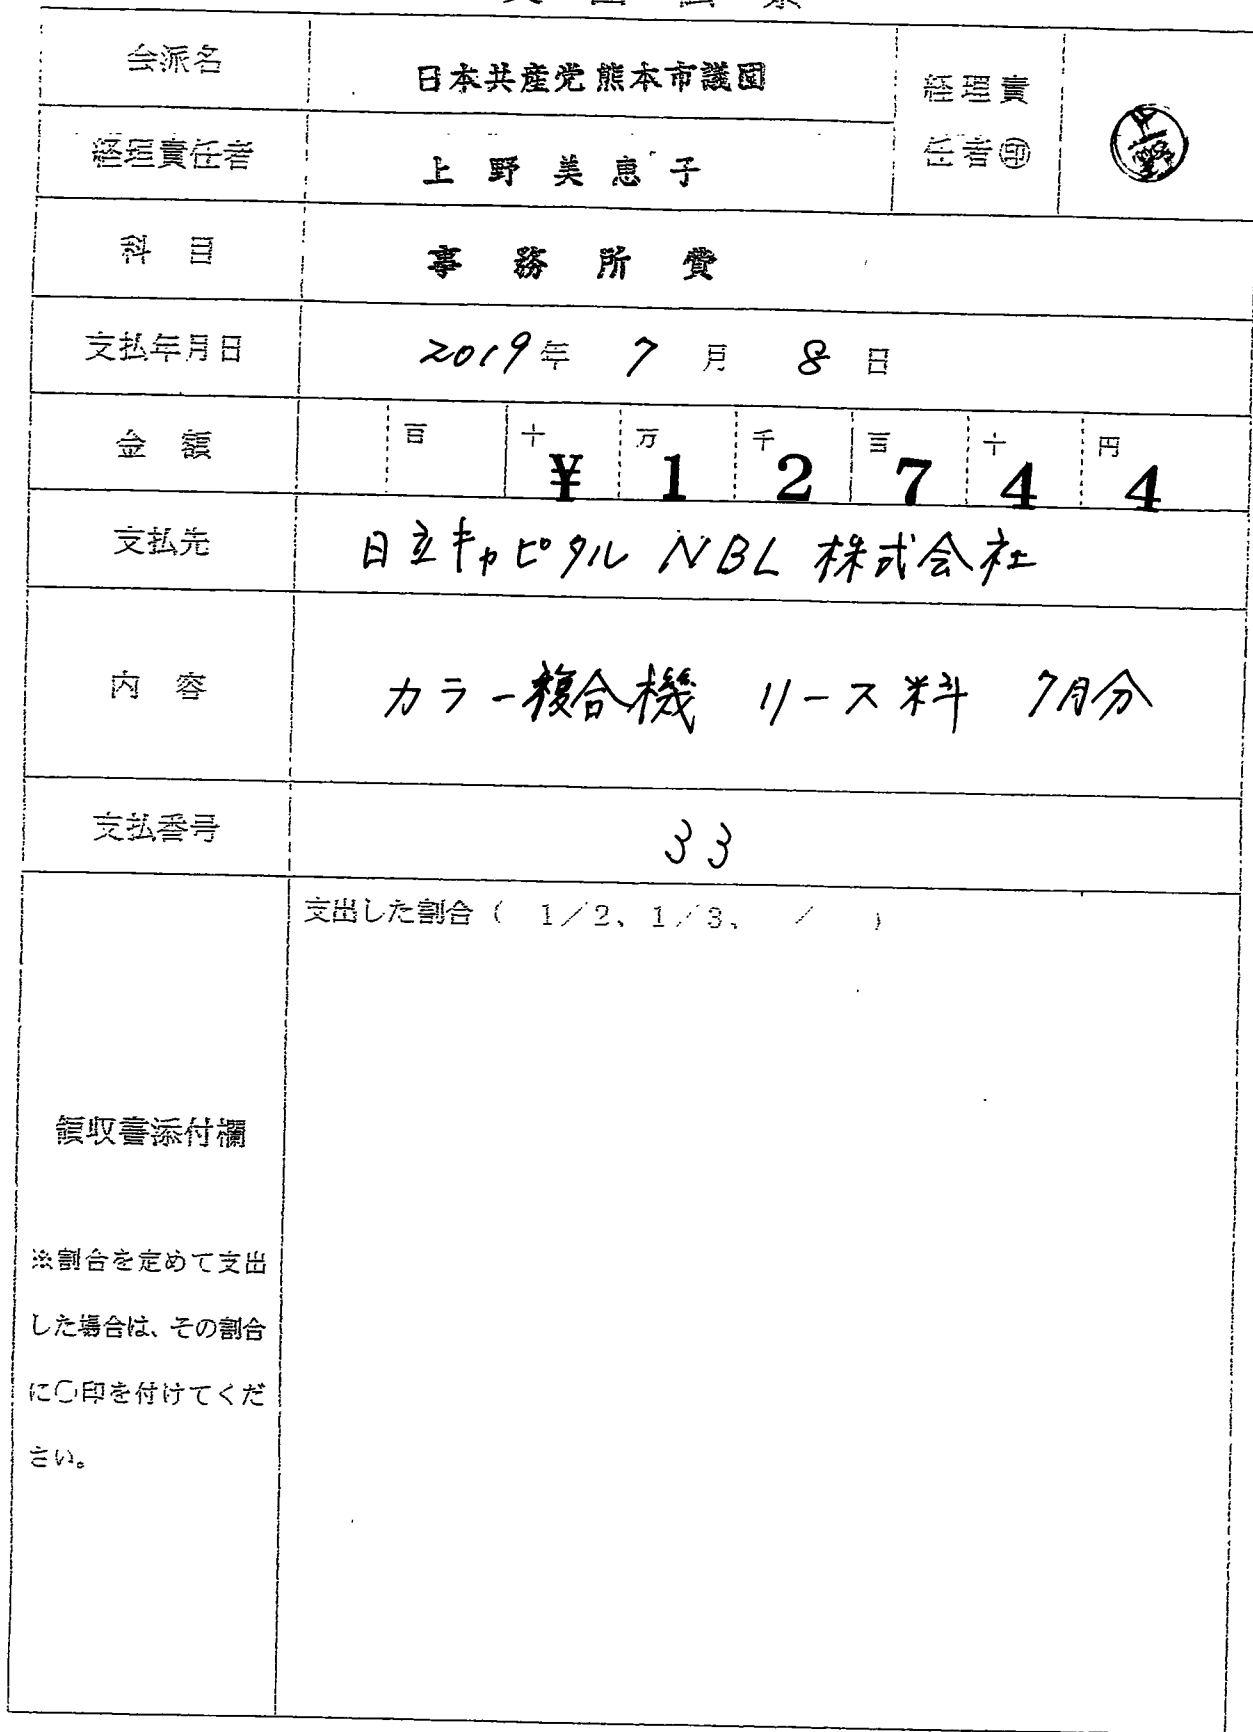 会派名
日本共産党熊本市議団
経理責
任者㊞
上野
経理責任者
上野美恵子
科目
事務所費
支払年月日
2019年 7月 8日
金額
百 十 万 千 百 十 円
¥ 1 2 7 4 4
支払先
日立キャピタルNBL株式会社
内容
カラー複合機 リース料 7月分
支払番号
33
支出した割合( 1/2、1/3、 / )
領収書添付欄
※割合を定めて支出
した場合は、その割合
に○印を付けてくだ
さい。